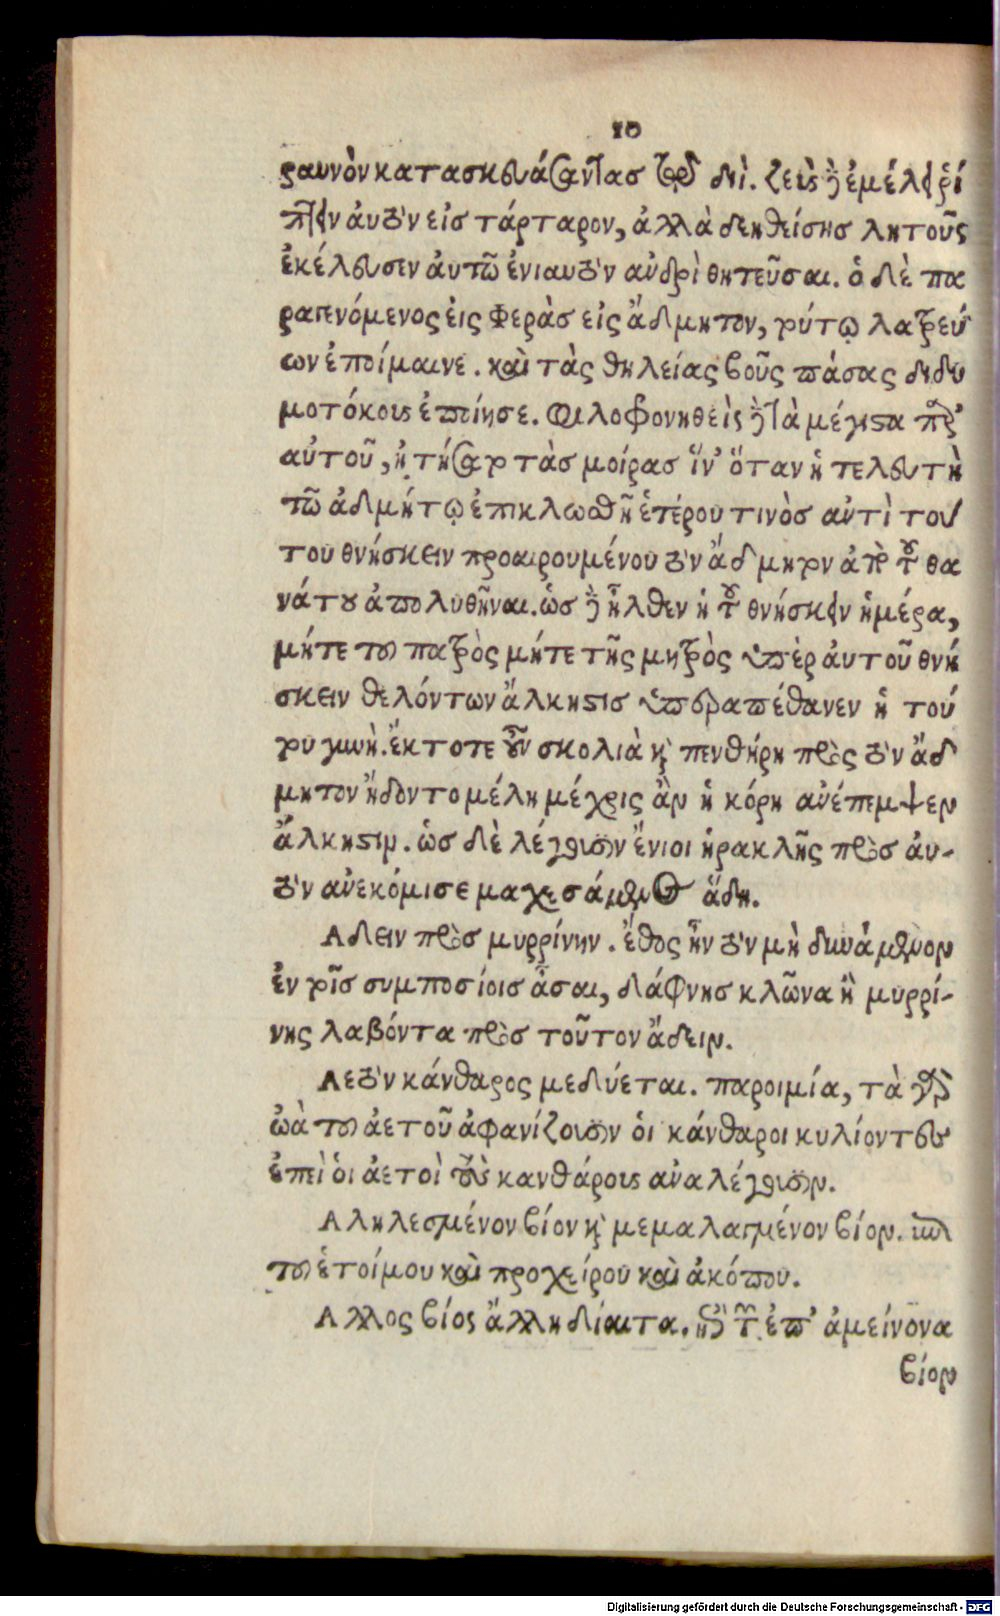 10
ραυνὸν κατασκευάσαντας τῷ διί. ζεὺς δὲ ἐμέλλησε ῥί
πτειν ἀυτὸν εἰς τάρταρον, ἀλλὰ δεηθείσης λητοῦς
ἐκέλευσεν ἀυτῶ ἐνιαυτὸν ἀνδρὶ θητεῦσαι. ὁ δὲ πα
ραγενόμενος ἐις Φερὰς εἰς ἄδμητον, τούτῳ λατρεύ
ων ἐποίμαινε. καὶ τὰς θηλείας βοῦς πάσας διδυ
μοτόκους ἐποίησε. φιλοφρονηθεὶς δὲ τὰ μέγιστα πρὸς
αὐτοῦ, ἠτήσατο τὰς μοίρας ἵν' ὅταν ἡ τελευτὴ
τῶ ἀδμήτῳ ἐπικλωσθῇ ἑτέρου τινὸς αὐτὶ του
του θνήσκειν προαιρουμένου τὸν ἄδμητον ἀπὸ τοῦ θα
νάτου ἀπολυθῆναι. ὡς δὲ ἦλθεν ἡ τοῦ θνήσκειν ἡμέρα,
μήτε του πατρὸς μήτε τῆς μητρὸς ὑπὲρ ἀυτοῦ θνή
σκειν θελόντων ἄλκηστις ὑπεραπέθανεν ἡ τού
του γυνή. ἔκτοτε οὖν σκολιὰ καὶ πενθήρη πρὸς τὸν ἄδ
μητον ἤδοντο μέλη μέχρις ἂν ἡ κόρη ἀνέπεμψεν
ἄλκηστιν. ὡς δὲ λέγουσιν ἔνιοι ἡρακλῆς πρὸς ἀυ-
τὸν ἀνεκόμισε μαχεσάμενος ἅδῃ.
Αδειν πρὸς μυρρίνην. ἔθος ἦν τὸν μὴ δυνάμενον
ἐν τοῖς συμποσίοις ἆσαι, δάφνης κλῶνα ἢ μυρρί-
νης λαβόντα πρὸς τοῦτον ἄδειν.
Αετὸν κάνθαρος μεδύεται. παροιμία, τὰ γὰρ
ὠὰ του ἀετοῦ ἀφανίζουσιν ὁι κάνθαροι κυλίοντες
ἐπεὶ ὁι ἀετοὶ τοὺς κανθάρους ἀναλέγουσιν.
Αληλεσμένον βίον καὶ μεμαλαγμένον βίον. ἐπὶ
του ἑτοίμου καὶ προχείρου καὶ ἀκόπου.
Αλλος βίος ἄλλη δίαιτα. κατὰ τῶν ἐπ' ἀμείνονα
βίον
Digitalisierung gefördert durch die Deutsche Forschungsgemeinschaft - DFG